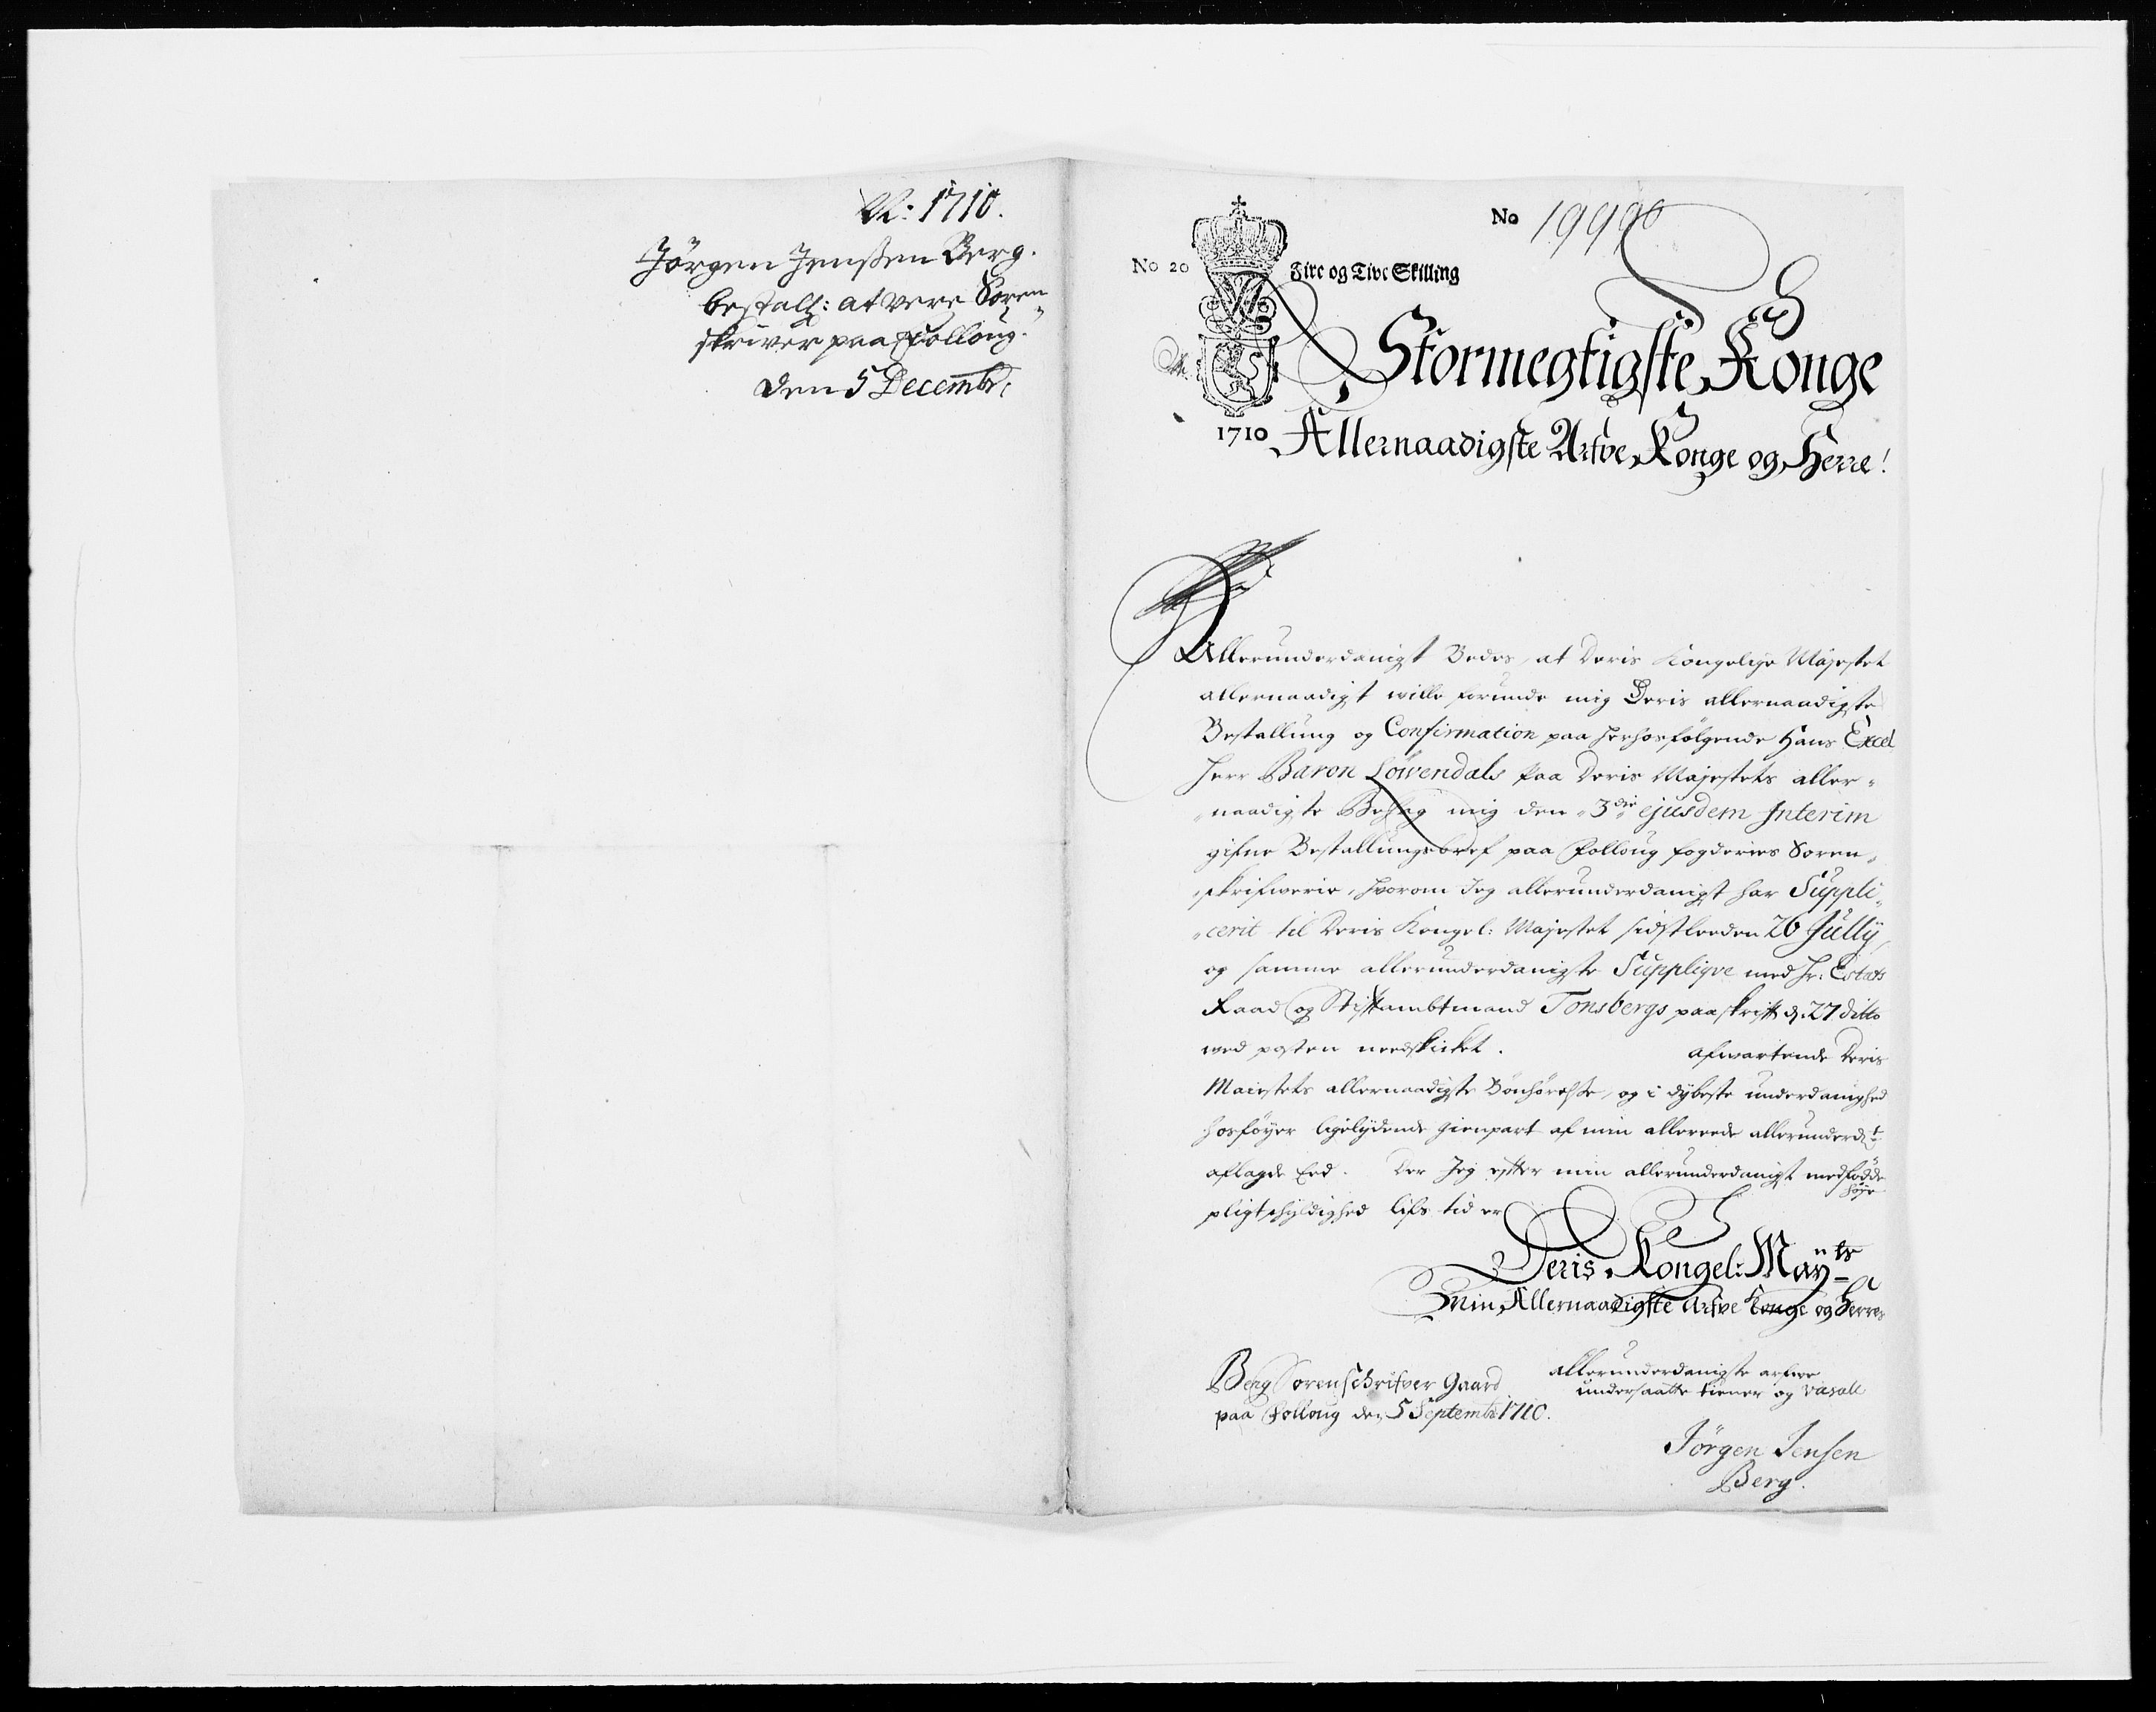 1710.
Jörgen Jenssen Berg.
bestall: at være Soren
skriver paa Folloug.
den 5 Decembr:
No 19990
No 20
Fire og Tive Skilling
Stormegtigste Konge
1710 Allernaadigste Arfve Konge og Herre!
Allerunderdanigst Bedes, at Deris Kongelige Majestet
allernaadigst wille forunde mig Deris allernaadigste
Bestallung og Confirmation paa herhosfølgende Hans Excel
Herr Baron Löwendals paa Deris Majestets aller„
„naadigste Behag mig den 3die ejusdem Interim
gifne Bestallungsbref paa Folloug fogderies Soren„
„skrifwerie, hvorom Jeg allerunderdanigst har Suppli„
„cerit til Deris Kongel: Majestet sidstleeden 26 Jullÿ,
og samme allerunderdanigste Suppliqve med Hr: Estats
Raad og Stiftambtmand Tonsbergs paaskrift d. 27 ditto
med posten needskicket. afwartende Deris
Maiestets allernaadigste Bönhörelse, og i dÿbeste underdanighed
hosföyer ligelÿdende gienpart af min allereede allerunderd:t
aflagde Eed. Der Jeg efter min allerunderdanigst medfødde
pligtskÿldighed lifs tid er
Deris Kongel: Maÿts
Min Allernaadigste Arfve Konge og Herres
Berg Sorenschrifver Gaard
paa Folloug den 5 Septembr 1710.
allerunderdanigste arfwe
undersaatte tiener og vasall
Jörgen Jensen
Berg.